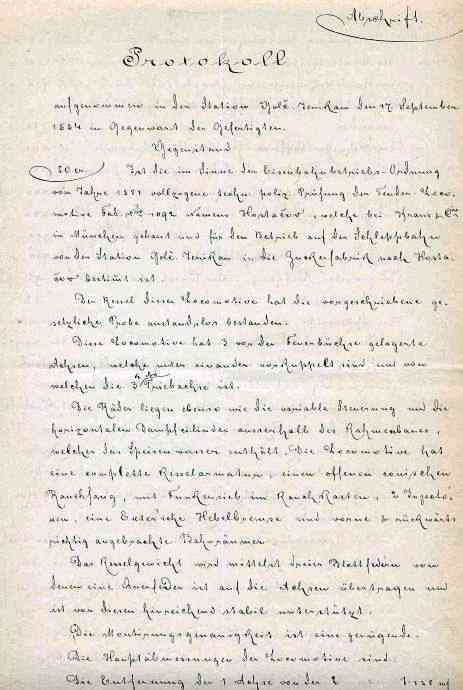 Abschrift.
Protokoll
aufgenommen in der Station Golč Jenikau den 17 September
1884 in Gegenwart der Gefertigten.
Gegenstand
Ist die im Sinne der Eisenbahnbetriebs-Ordnung
vom Jahre 1851 vollzogene techn. poliz. Prüfung der Tender-Loco-
motive Fab. Nro 1092 Namens Hostačov, welche bei Krauss & Co
in München gebaut und für den Betrieb auf der Schleppbahn
von der Station Golč Jenikau in die Zuckerfabrik nach Hosta-
čov bestimt ist.
Der Kessel dieser Locomotive hat die vorgeschriebene ge-
setzliche Probe anstandslos bestanden.
Diese Locomotive hat 3 vor der Feuerbüchse gelagerte
Achsen, welche unter einander verkuppelt sind und von
welchen die 3te Triebachse ist.
Die Räder liegen ebenso wie die variable Steuerung und die
horizontalen Dampfcilinder ausserhalb des Rahmenbaues,
welcher das Speisewasser enthält. Die Locomotive hat
eine complette Kesselarmatur, einen offenen conischen
Rauchfang, mit Funkensieb im Rauchkasten, 2 Injecto-
ren, eine Exter'sche Hebelbremse und vorne & rückwärts
richtig angebrachte Bahnräumer.
Das Kesselgewicht wird mittelst zweier Blattfedern von
denen eine Querfeder ist auf die Achsen übertragen und
ist von diesen hinreichend stabil unterstützt.
Die Montirungsgenauigkeit ist eine genügende.
Die Hauptabmessungen der Locomotive sind
Die Entfernung der 1 Achse von der 2